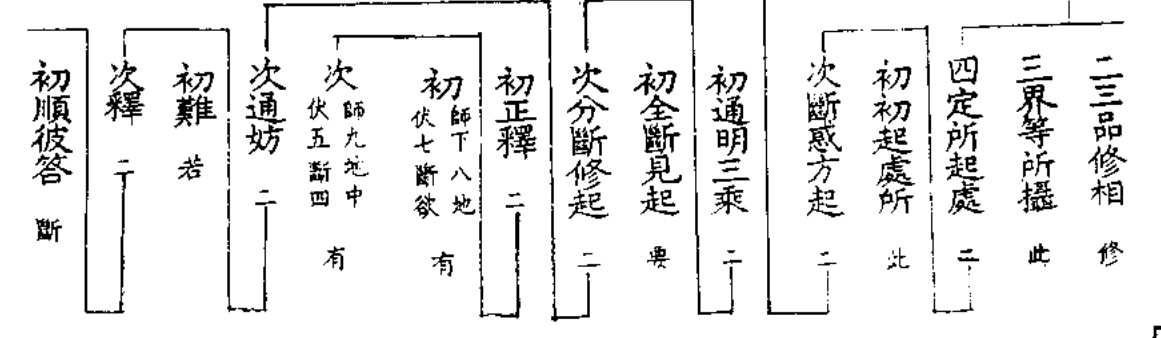 二三品修相 修
三界等所攝 此
四定所起處 二
初初起處所 此
次斷惑方起 二
初通明三乘 二
初全斷見起 要
次分斷修起 二
初正釋 二
初 師下八地伏七斷欲 有
次 師九地中伏五斷四 有
次通妨 二
初難 若
次釋 二
初順彼答 斷